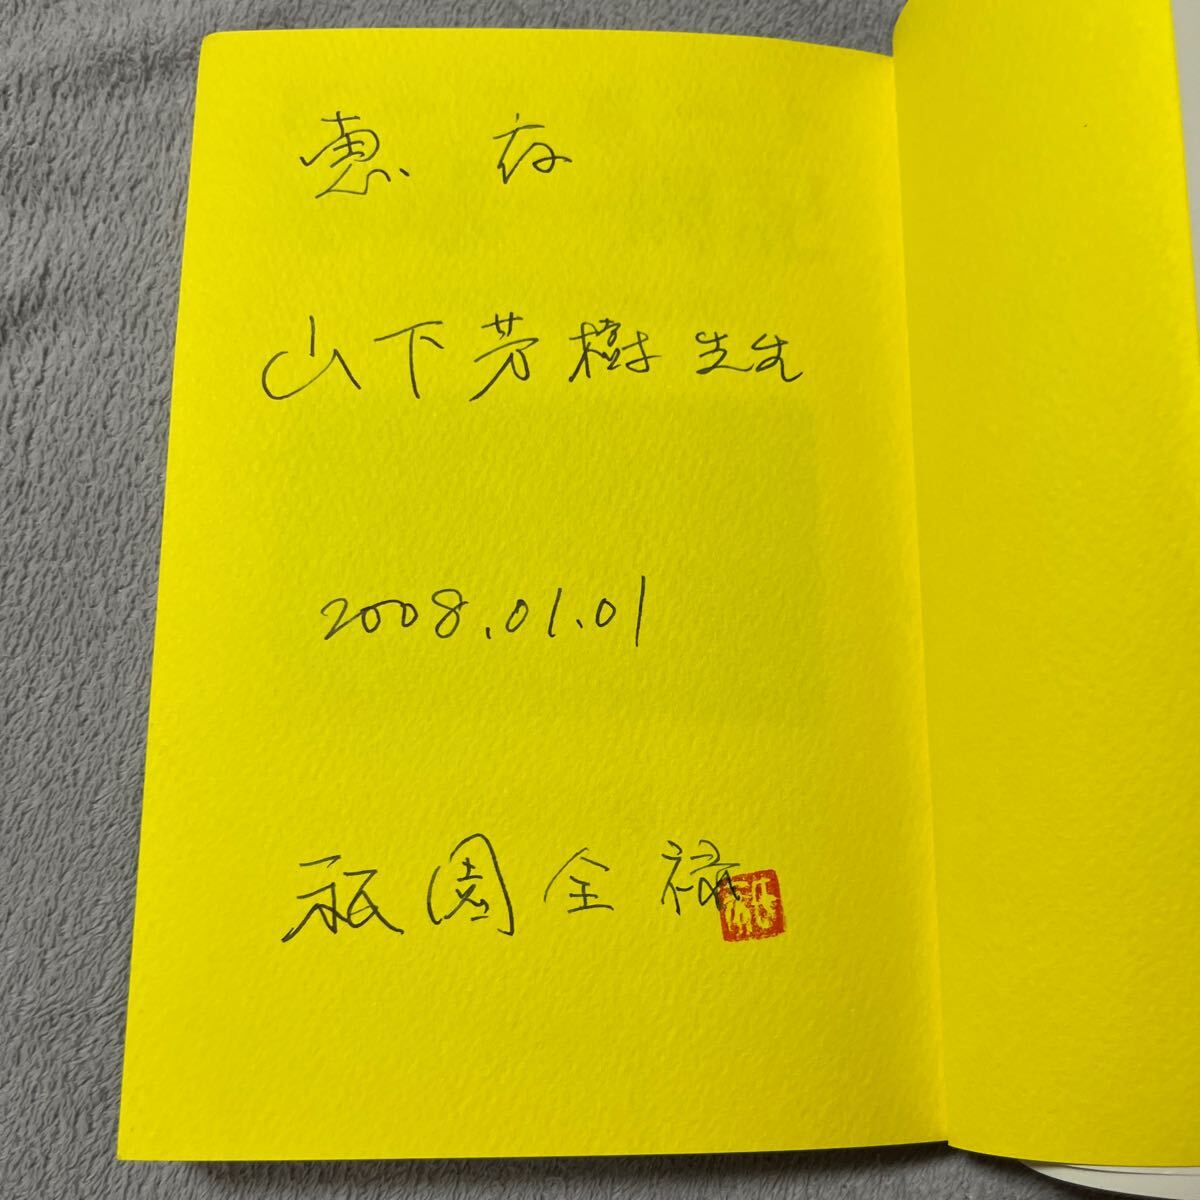 惠存
山下芳樹先生
2008.01.01
祇園全禄